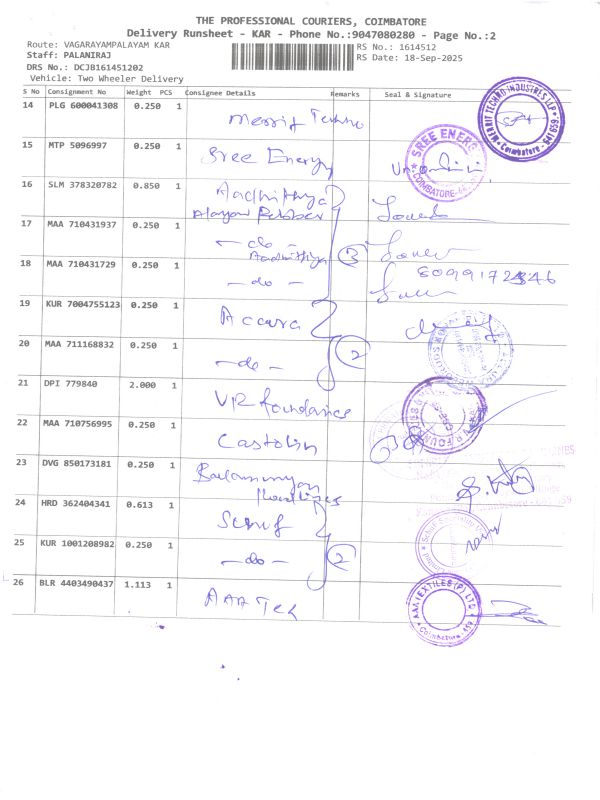 THE PROFESSIONAL COURIERS, COIMBATORE
Delivery Runsheet - KAR - Phone No.:9047080280 - Page No.:2
Route: VAGARAYAMPALAYAM KAR
RS No.: 1614512
Staff: PALANIRAJ
RS Date: 18-Sep-2025
DRS No.: DCJB161451202
Vehicle: Two Wheeler Delivery
S No Consignment No Weight PCS Consignee Details Remarks Seal & Signature
14 PLG 600041308 0.250 1 Merrit Techno
MERRIT TECHNO INDUSTRIES LLP Coimbatore - 641 659
15 MTP 5096997 0.250 1 Sree Energy
SREE ENERG COIMBATORE
16 SLM 378320782 0.850 1 Aadhithya
Rubber
17 MAA 710431937 0.250 1 - do - 3
Aadhithya
18 MAA 710431729 0.250 1 - do -
19 KUR 7004755123 0.250 1 Accura
20 MAA 711168832 0.250 1 - do - 2
21 DPI 779840 2.000 1 VR foundaries
22 MAA 710756995 0.250 1 Castolin
23 DVG 850173181 0.250 1
24 HRD 362404341 0.613 1
25 KUR 1001208982 0.250 1 - do - 2
26 BLR 4403490437 1.113 1 AAA Tex
AAA TEXTILES (P) LTD. Coimbatore - 659